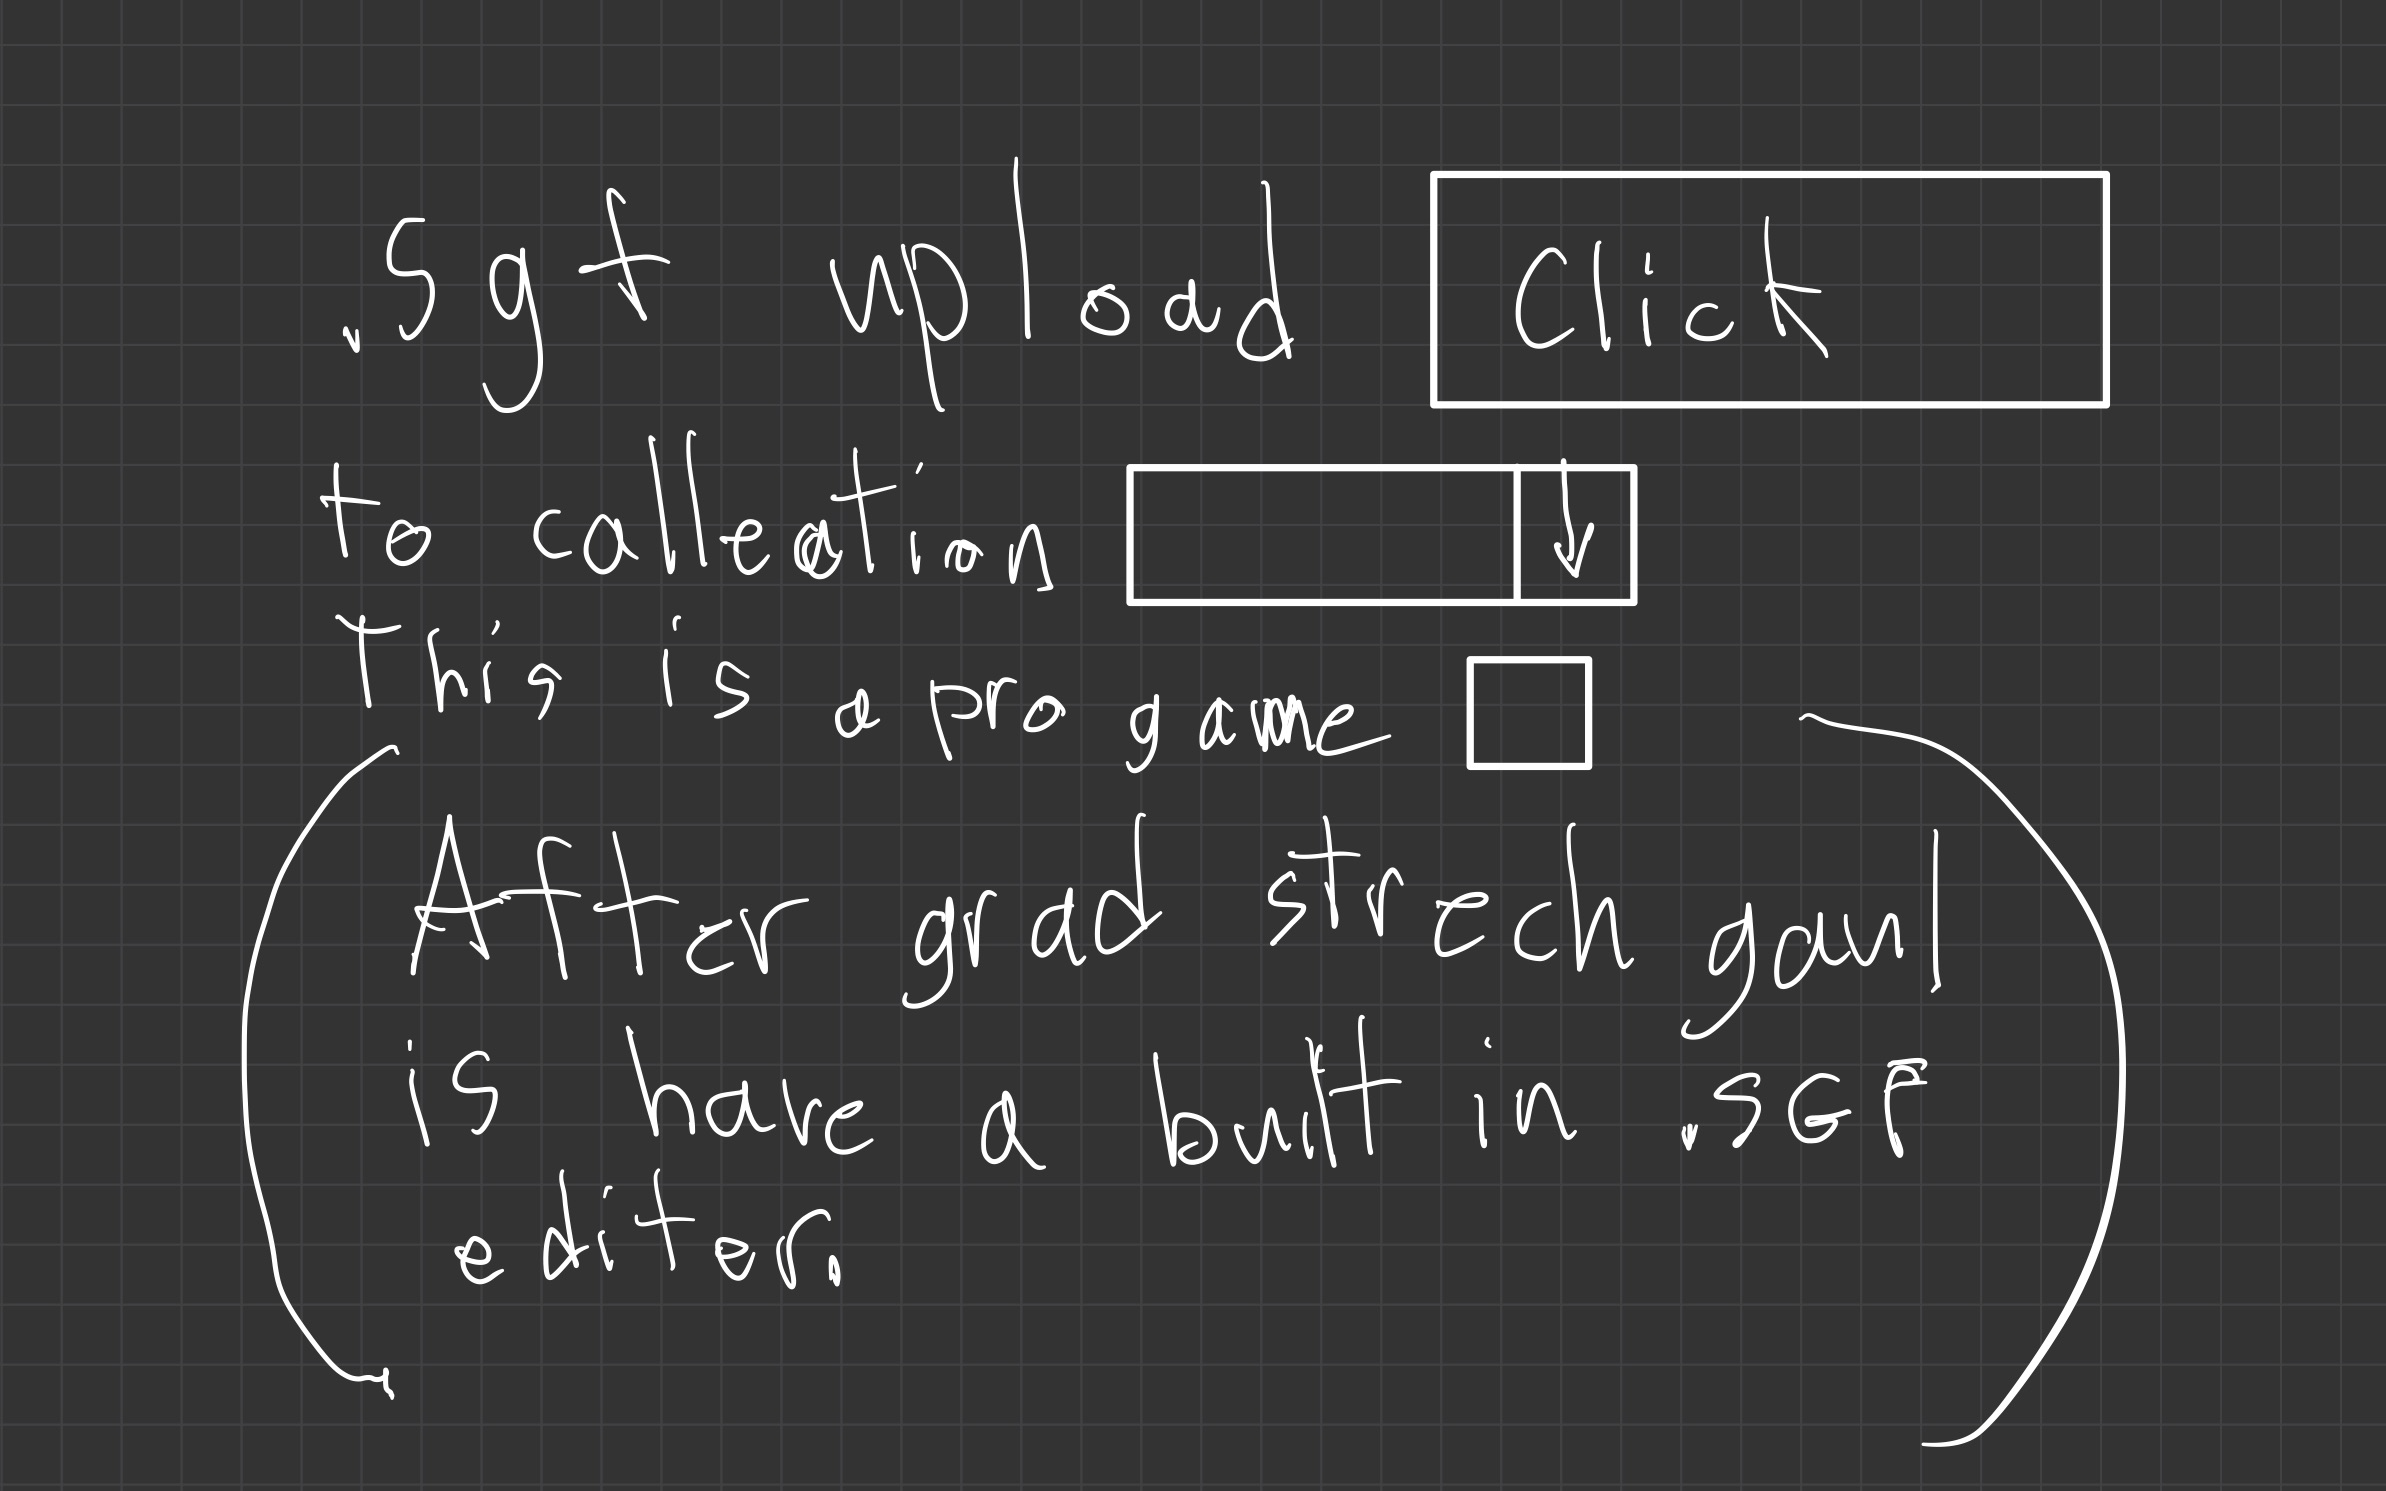 .sgf upload Click
to collection
This is a pro game
(After grad strech gaul
is have a built in .SGF
editer.)